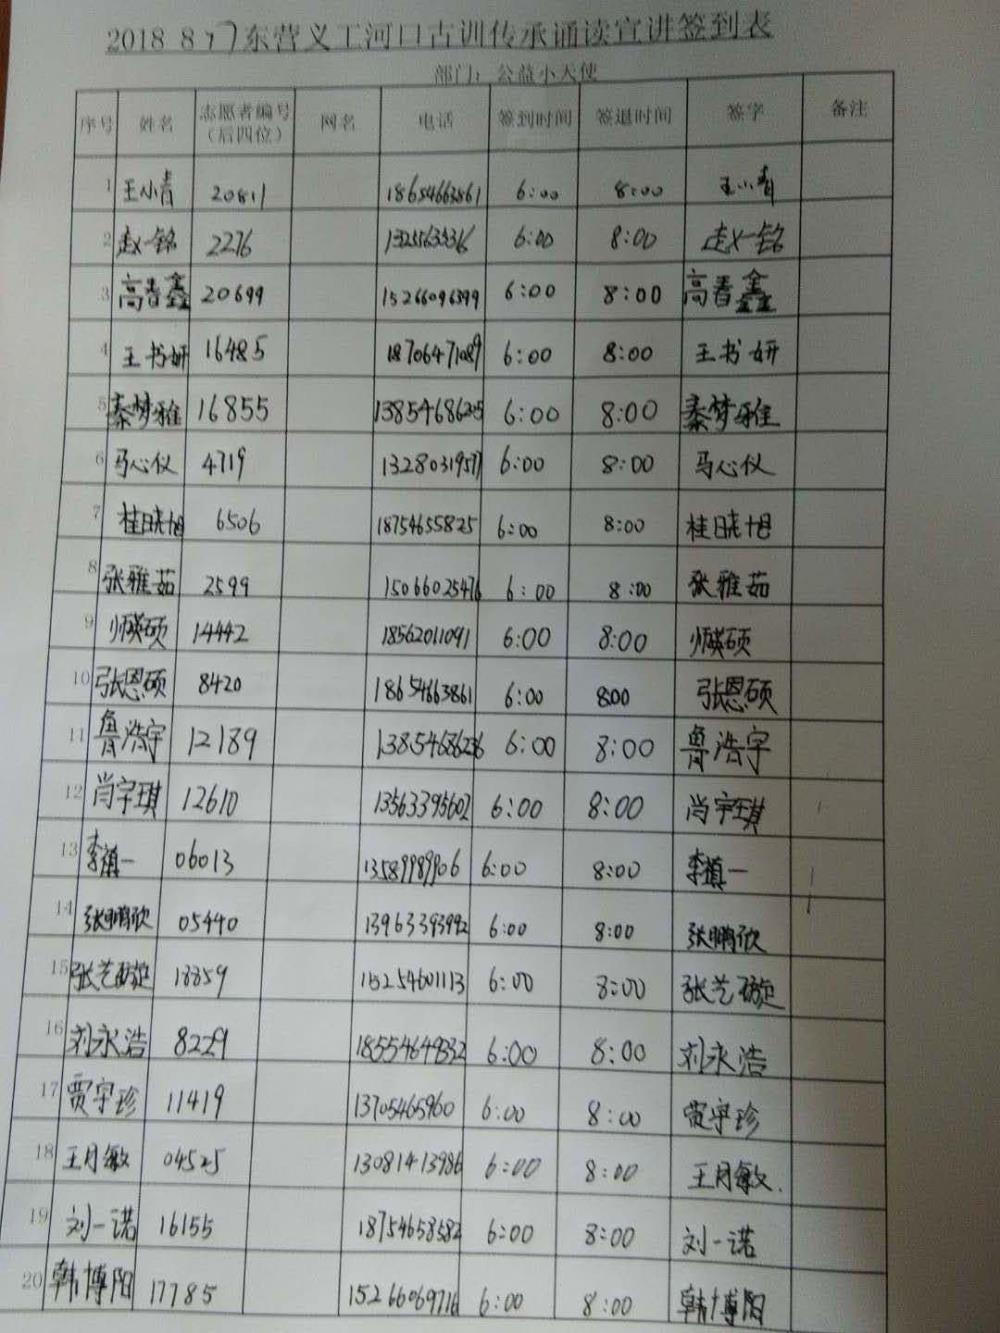 2018 8 17 东营义工河口古训传承诵读宣讲签到表
部门: 公益小天使
序号 姓名 志愿者编号（后四位） 网名 电话 签到时间 签退时间 签字 备注
1 王小青 20811 18654663861 6:00 8:00 王小青
2 赵一铭 2276 6:00 8:00 赵一铭
3 高春鑫 20699 15266096399 6:00 8:00 高春鑫
4 王书妍 16485 18706471089 6:00 8:00 王书妍
5 秦梦雅 16855 13854686265 6:00 8:00 秦梦雅
6 马心仪 4719 13280319577 6:00 8:00 马心仪
7 桂晓旭 6506 18754655825 6:00 8:00 桂晓旭
8 张雅茹 2599 15066025476 6:00 8:00 张雅茹
9 师瑛硕 14442 18562011091 6:00 8:00 师瑛硕
10 张恩硕 8420 18654663861 6:00 8:00 张恩硕
11 鲁浩宇 12189 13854686236 6:00 8:00 鲁浩宇
12 尚宇琪 12610 13563395602 6:00 8:00 尚宇琪
13 李禛一 06013 13589989906 6:00 8:00 李禛一
14 张鹏欣 05440 13963393992 6:00 8:00 张鹏欣
15 张艺璇 18859 15254601113 6:00 8:00 张艺璇
16 刘永浩 8229 18554649832 6:00 8:00 刘永浩
17 贾宇珍 11419 13705465960 6:00 8:00 贾宇珍
18 王月敏 04525 13081413986 6:00 8:00 王月敏.
19 刘一诺 16155 18754658582 6:00 8:00 刘一诺
20 韩博阳 17785 15266069716 6:00 8:00 韩博阳